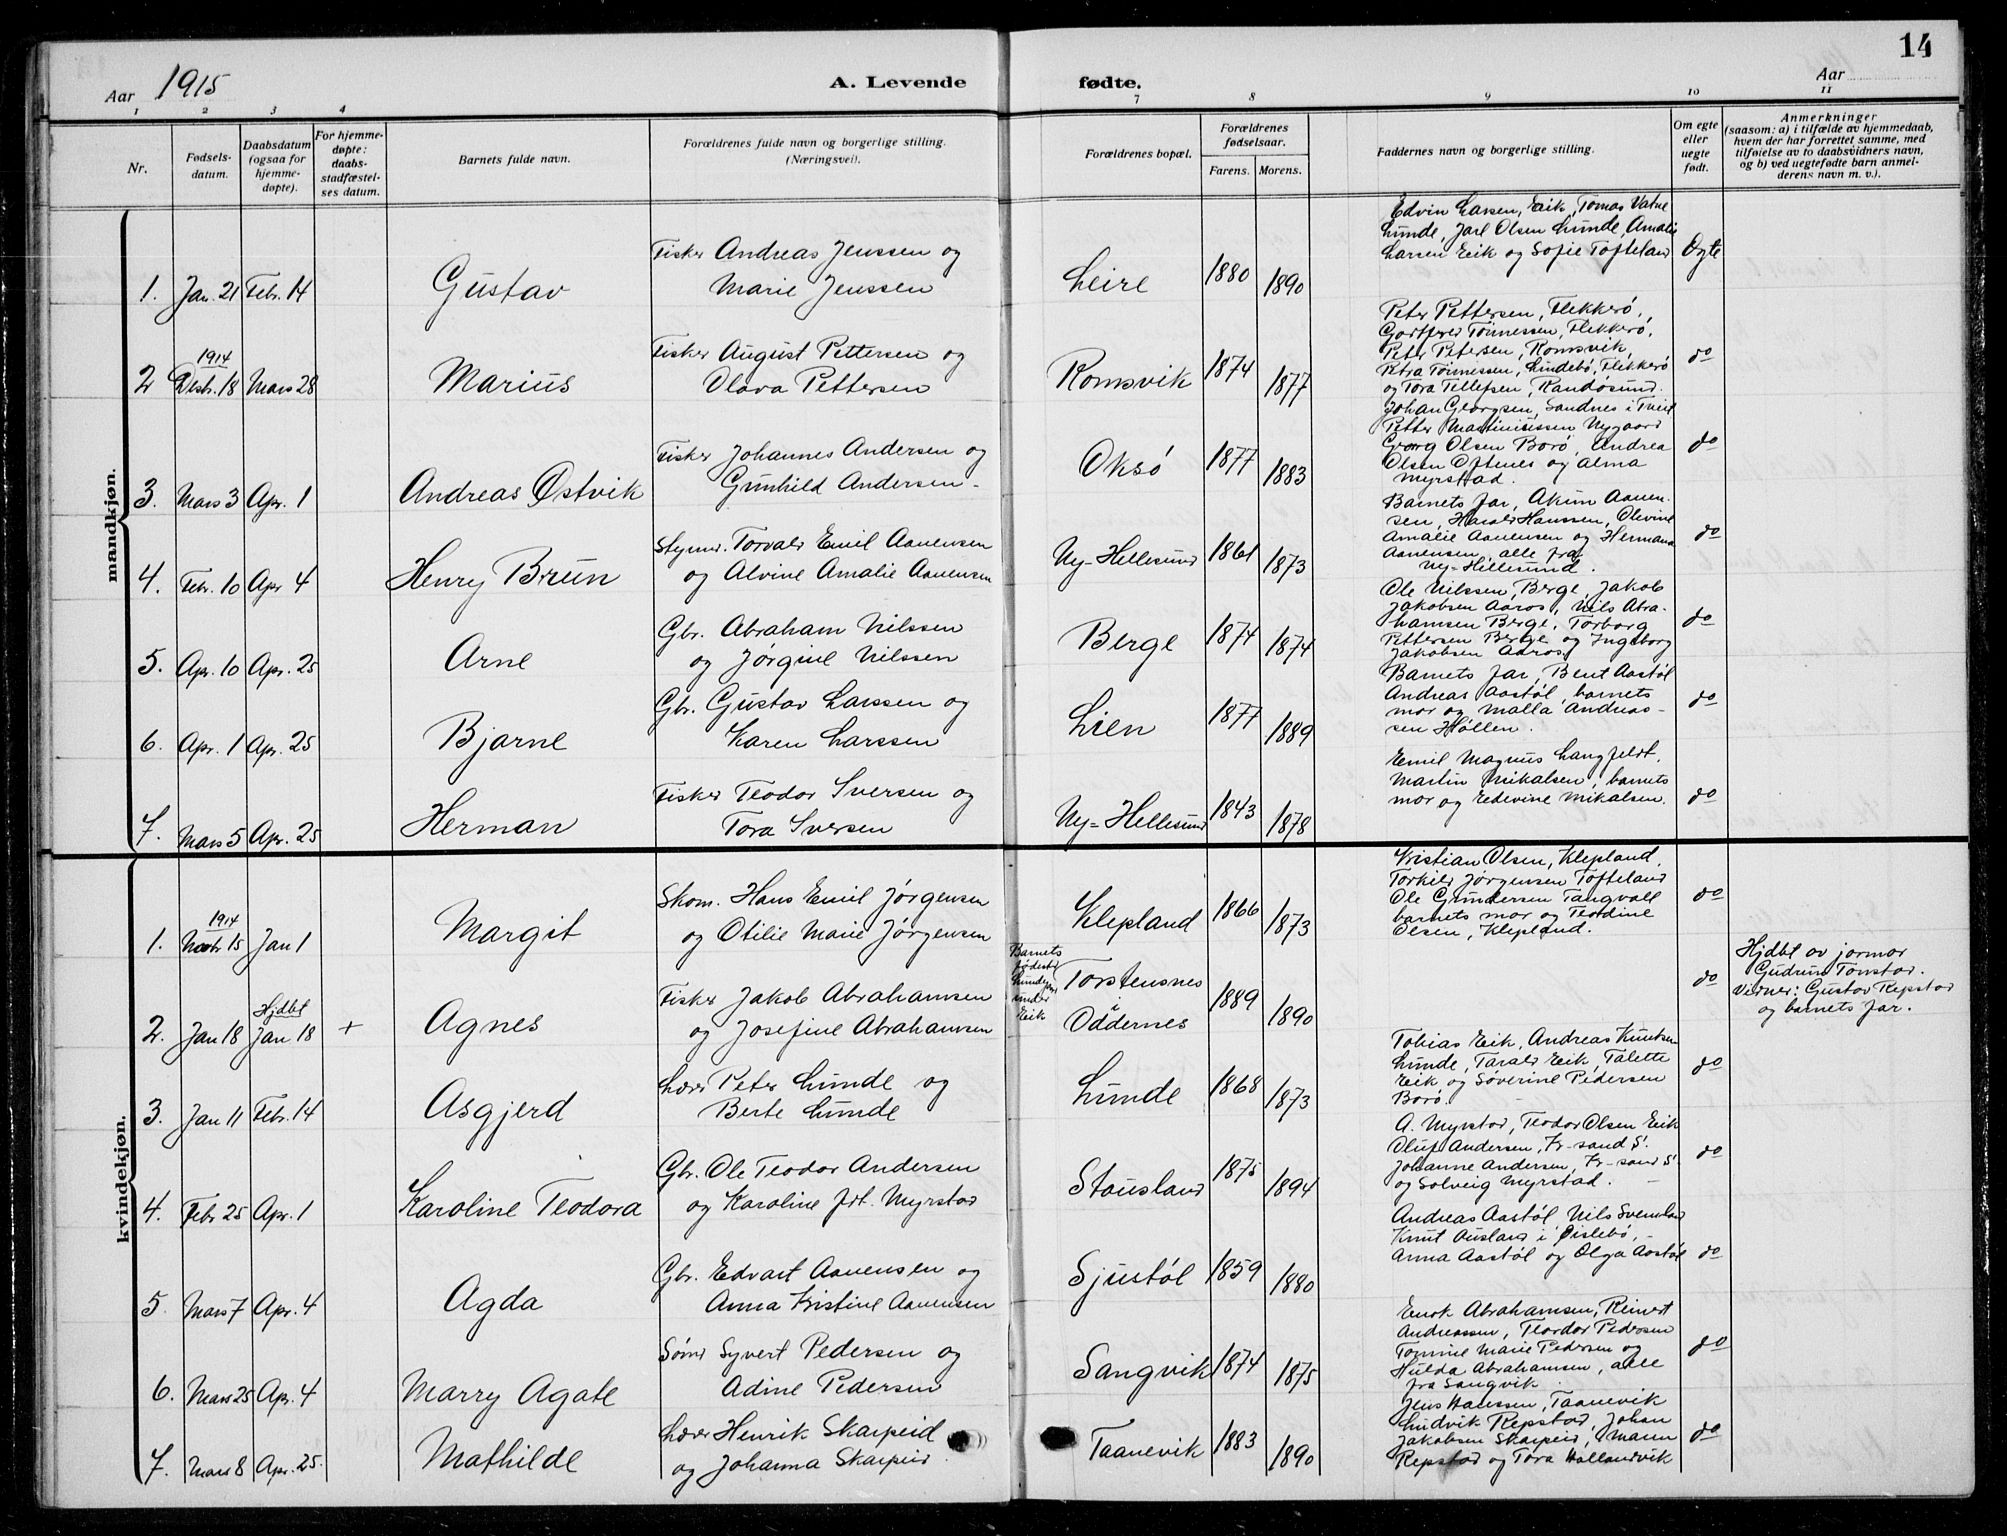 14
Aar 1915
A. Levende fødte.
Aar
1 2 3 4 7 8 9 10 11
Nr.
Fødsels-
datum.
Daabsdatum
(ogsaa for
hjemme-
døpte).
For hjemme-
døpte:
daabs-
stadfæstel-
ses datum.
Barnets fulde navn.
Forældrenes fulde navn og borgerlige stilling.
(Næringsvei).
Forældrenes bopæl.
Forældrenes
fødselsaar.
Farens. Morens.
Faddernes navn og borgerlige stilling.
Om egte
eller
uegte
født.
Anmerkninger
(saasom: a) i tilfælde av hjemmedaab,
hvem der har forrettet samme, med
tilføielse av to daabsvidners navn,
og b) ved uegtefødte barn anmel-
derens navn m. v.).
mandkjøn.
1. Jan. 21 Febr. 14 Gustav
Fisker Andreas Jenssen og
Marie Jenssen
Leire 1880 1890
Edvin Larsen, Eik, Tomas Vatne
Lunde, Jarl Olsen Lunde, Amalie
Larsen Eik og Sofie Tofteland
Egte
1914
2 Desbr. 18 Mars 28 Marius
Fisker August Pettersen og
Olava Pettersen
Romsvik 1874 1877
Peter Pettersen, Flekkerö,
Tönnessen, Flekkerö,
Peter Petersen, Romsvik,
Petra Tönnessen, Lindebö, Flekkerö
og Tora Tellefsen, Randösund.
do
3. Mars 3 Apr. 1 Andreas Østvik
Fisker Johannes Andersen og
Gunhild Andersen.
Oksö 1877 1883
Johan Georgsen, Sandnes i Tveit
Petter Martiniussen Nygaard
Georg Olsen Borö, Andrea
Olsen Oftenes og Alma
Myrstad.
do
4. Febr. 10 Apr 4 Henry Brun
Styrmd. Torvald Emil Aanensen
og Alvine Amalie Aanensen
Ny-Hellesund 1861 1873
Barnets far, Akim Aanen-
sen, Harald Hanssen, Olevine
Amalie Aanensen og Hermana
Aanensen, alle fra
Ny-Hellesund.
do
5. Apr. 10 Apr. 25 Arne
Gbr. Abraham Nilssen
og Jörgine Nilssen
Berge 1874 1874
Ole Nilssen, Berge, Jakob
Jakobsen Aaros, Nils Abra-
hamsen Berge, Torborg
Pettersen Berge og Ingeborg
Jakobsen Aaros
do
6. Apr. 1 Apr. 25 Bjarne
Gbr. Gustav Larssen og
Karen Larssen
Lien 1877 1889
Barnets far, Bent Aastöl
Andreas Aastöl, barnets
mor og Malla Andreas-
sen Höllen.
do
7. Mars 5 Apr. 25 Herman
Fisker Teodor Iversen og
Tora Iversen
Ny-Hellesund 1843 1878
Emil Magnus Langfeldt,
Martin Mikalsen, barnets
mor og Edevine Mikalsen.
do
kvindekjøn.
1914
1. Novbr. 15 Jan 1 Margit
Skom. Hans Emil Jörgensen
og Otilie Marie Jörgensen
Klepland 1866 1873
Kristian Olsen, Klepland,
Torkild Jörgensen Tofteland
Ole Gundersen Tangvall
barnets mor og Teodine
Olsen, Klepland.
do
2. Jan 18 Hjdbt Jan 18 + Agnes
Fisker Jakob Abrahamsen
og Josefine Abrahamsen
Barnets
fødested
under
Eik
Torstensnes
i
Oddernes
1889 1890
do
Hjdbt av jormor
Gudrun Tonstad.
Vidner: Gustav Repstad
og barnets far.
3. Jan 11 Febr. 14 Asgjerd
Lærer Peter Lunde og
Berte Lunde
Lunde 1868 1873
Tobias Eik, Andreas Knutsen
Lunde, Tarald Eik, Talette
Eik og Söverine Pedersen
Borö.
do
4. Febr 25 Apr. 1 Karoline Teodora
Gbr. Ole Teodor Andersen
og Karoline fdt. Myrstad
Stausland 1875 1894
A. Myrstad, Teodor Olsen Eik
Oluf Andersen, Kr-sand S.
Johanne Andersen, Kr-sand S.
og Solveig Myrstad.
do
5. Mars 7 Apr. 4 Agda
Gbr. Edvart Aanensen og
Anna Kristine Aanensen
Sjustöl 1859 1880
Andreas Aastöl, Nils
Knut Ausland i Öislebö,
Anna Aastöl og Olga Aastöl
do
6. Mars 25 Apr. 4 Marry Agate
Sömd Syvert Pedersen og
Adine Pedersen
Sangvik 1874 1875
Enok Abrahamsen, Reinert
Andreassen, Teodor Pedersen
Tomine Marie Pedersen og
Hulda Abrahamsen, alle
fra Sangvik.
do
7. Mars 8 Apr. 25. Mathilde
Lærer Henrik Skarpeid
og Johanna Skarpeid.
Taanevik 1883 1890
Jens Hanssen, Taanevik
Ludvik Repstad, Johan
Jakobsen Skarpeid, Maren
Repstad og Tora Hallandvik
do